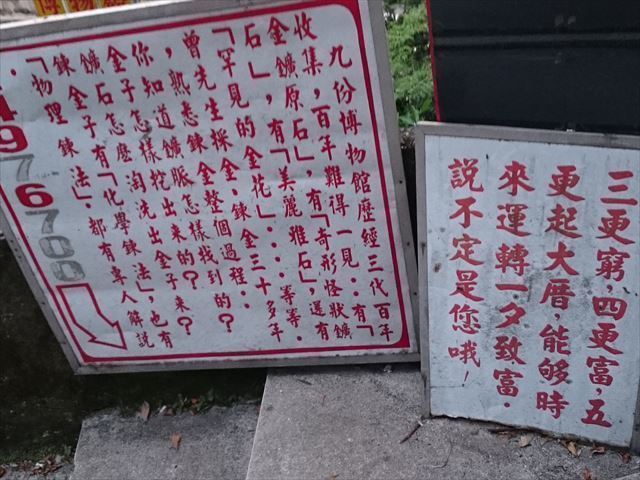 九份博物館歷經三代百年
收集，百年難得一見：有「
金鑛原石」，有「奇形怪狀鑛
石」，有「美麗雅石」，還有
「罕見的金花」……等等．
曾先生採金、鍊金三十多年
，熟悉鍊金整個過程：
你知道鑛脈怎樣找到的？
金子怎樣挖出來的？
鑛石怎麼淘洗出金子來？
鍊金子有「化學鍊法」，也有
「物理鍊法」，都有專人解說
．
4976700
三更窮，四更富，五
更起大厝，能夠時
來運轉一夕致富．
說不定是您哦！